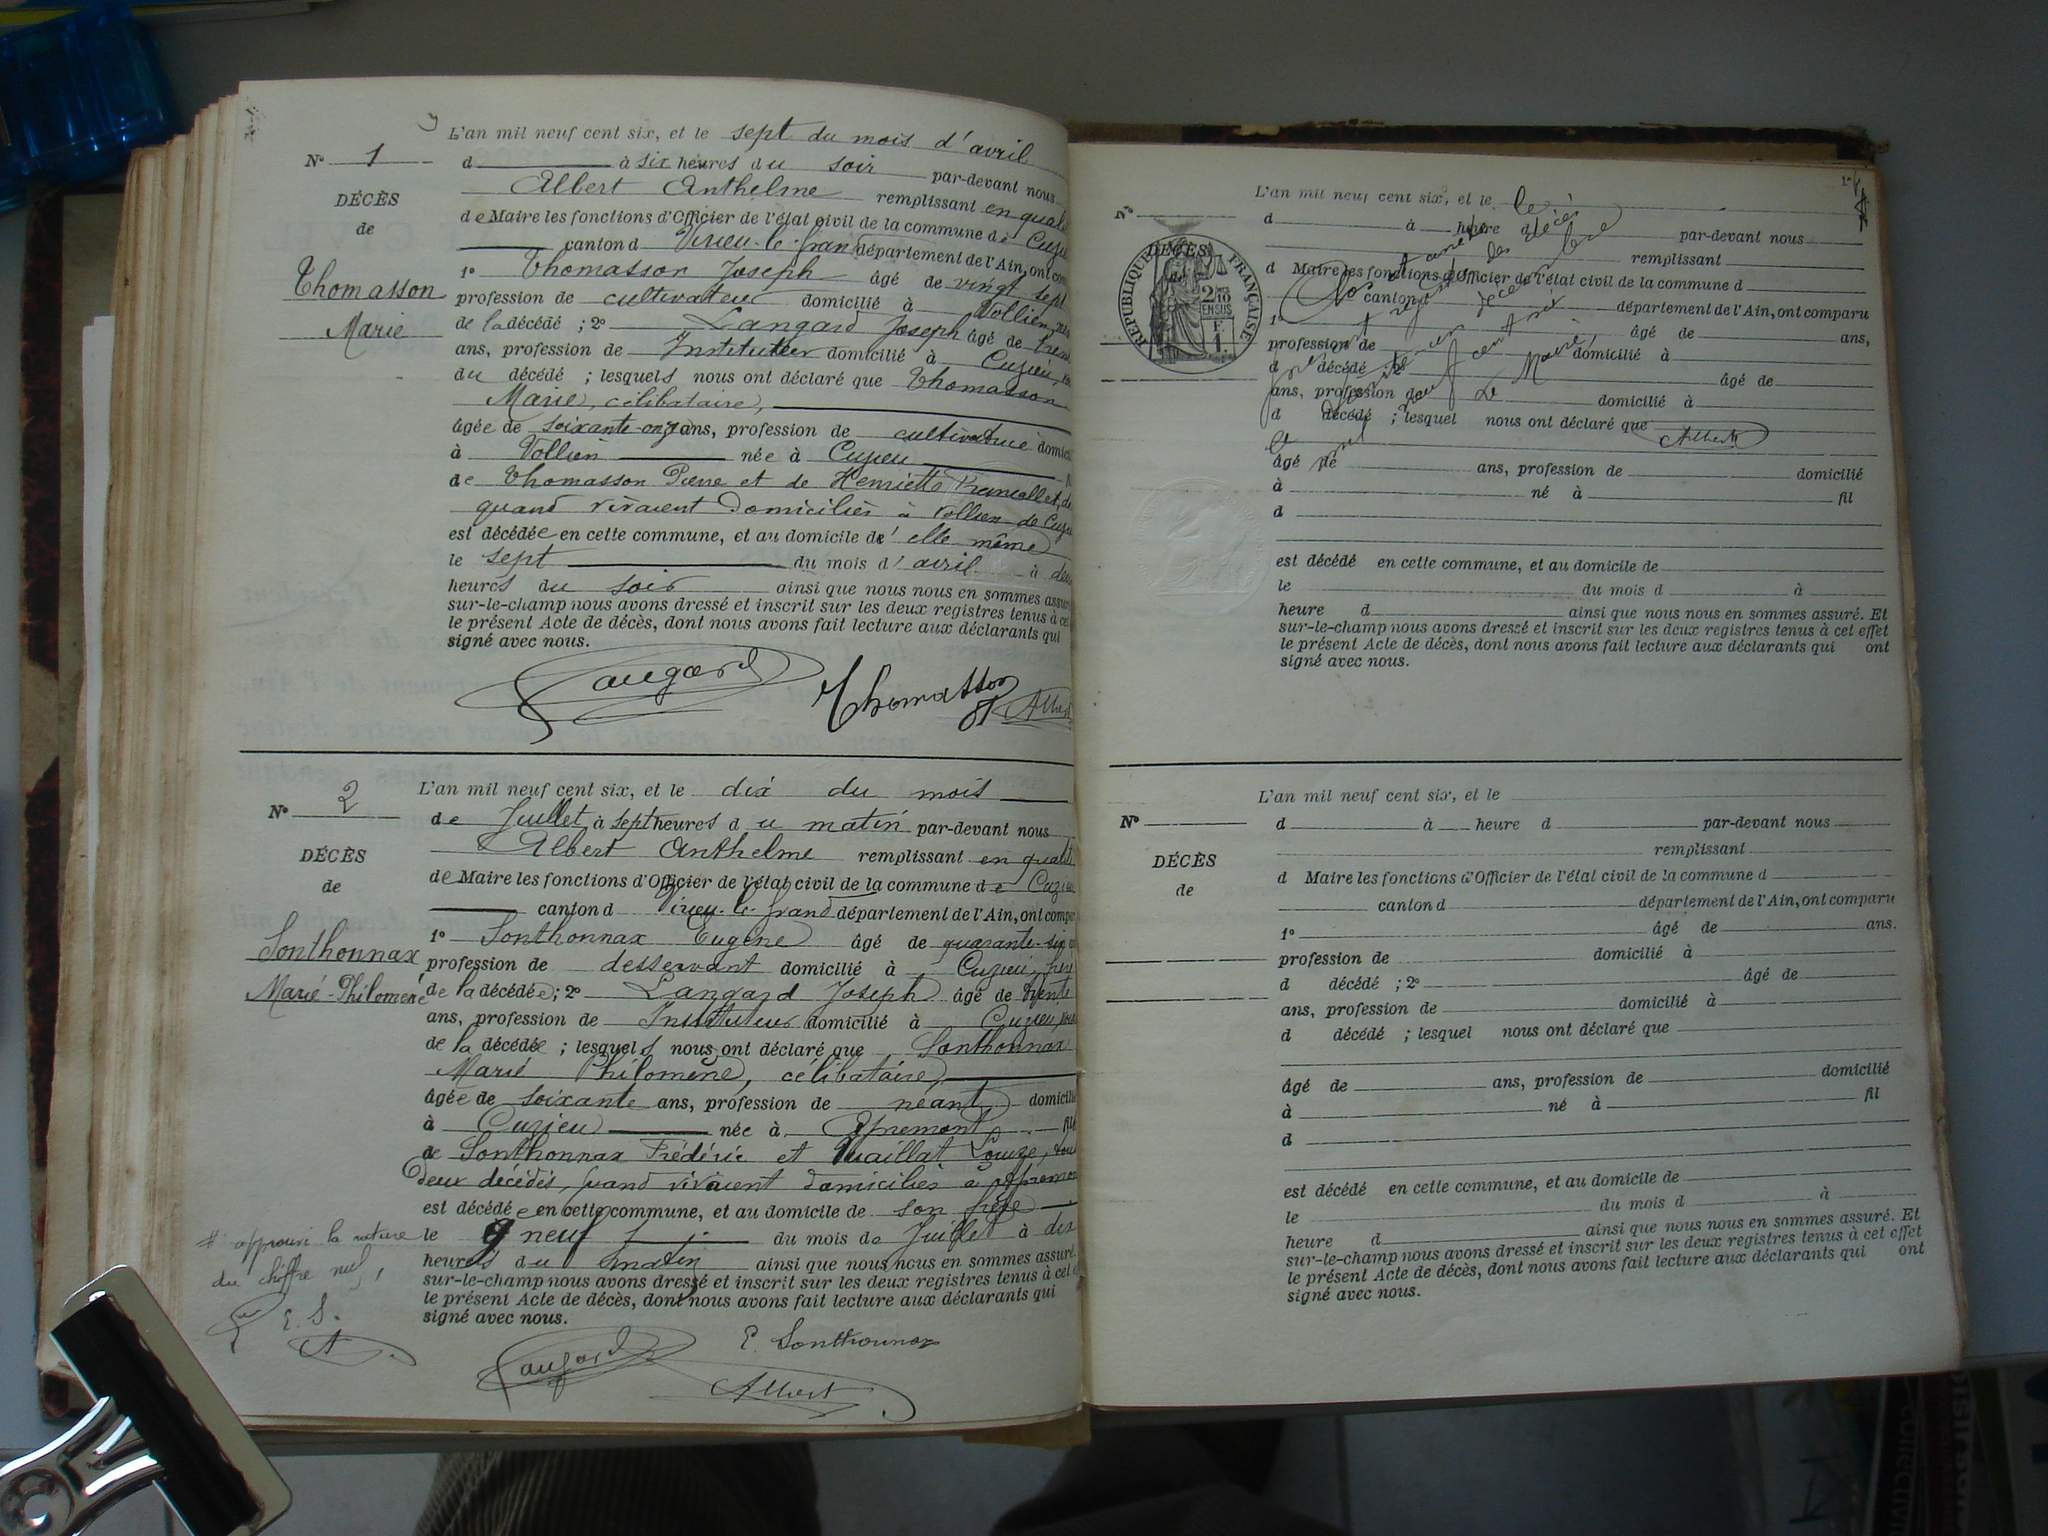 L'an mil neuf cent six, et le sept du mois d'avril
N° 1 d à six heures du soir par-devant nous
Albert Anthelme remplissant en quali
DÉCÈS
de Maire les fonctions d'Officier de l'état civil de la commune de Cuzieu
de
canton d Virieu-le-grand département de l'Ain, ont com
1° Thomasson Joseph âgé de vingt sept
Thomasson
profession de cultivateur domicilié à Vollien
Marie
de la décédé ; 2° Langard Joseph âgé de trente
ans, profession de Instituteur domicilié à Cuzieu
du décédé ; lesquels nous ont déclaré que Thomasson
Marie, célibataire,
âgée de soixante-onze ans, profession de cultivatrice domici
à Vollien née à Cuzieu
de Thomasson Pierre et de Henriette
quand vivaient domiciliés à Vollien de Cuzieu
est décédée en cette commune, et au domicile de elle même
le sept du mois d'avril à deux
heures du soir ainsi que nous nous en sommes assur
sur-le-champ nous avons dressé et inscrit sur les deux registres tenus à cet
le présent Acte de décès, dont nous avons fait lecture aux déclarants qui
signé avec nous.
Langard Thomasson Albert
L'an mil neuf cent six, et le dix du mois
N° 2
de Juillet à sept heures du matin par-devant nous
Albert Anthelme remplissant en qualité
DÉCÈS
de Maire les fonctions d'Officier de l'état civil de la commune de Cuzieu
de
canton d Virieu-le-grand département de l'Ain, ont compar
1° Sonthonnax Eugène âgé de quarante-six
Sonthonnax
profession de desservant domicilié à Cuzieu, frère
Marie-Philomène
de la décédée ; 2° Langard Joseph âgé de trente
ans, profession de Instituteur domicilié à Cuzieu
de la décédée ; lesquels nous ont déclaré que Sonthonnax
Marie Philomène, célibataire,
âgée de soixante ans, profession de néant domicilié
à Cuzieu née à Apremont fil
de Sonthonnax Frédéric et Louize, tous
deux décédés, quand vivaient domiciliés à Apremon
est décédée en cette commune, et au domicile de son frère
le 9 neuf du mois de Juillet à dix
heures du matin ainsi que nous nous en sommes assuré.
sur-le-champ nous avons dressé et inscrit sur les deux registres tenus à cet
le présent Acte de décès, dont nous avons fait lecture aux déclarants qui
signé avec nous.
approuvé la rature
du chiffre nul,
E. S.
A
Langard E. Sonthonnax
Albert
L'an mil neuf cent six, et le
N°
d à heure d par-devant nous
remplissant
DÉCÈS
RÉPUBLIQUE FRANÇAISE
2/10 EN SUS
F. 1.
d Maire les fonctions d'Officier de l'état civil de la commune d
canton d département de l'Ain, ont comparu
1° âgé de ans,
profession de domicilié à
d décédé ; 2° âgé de
ans, profession de domicilié à
d décédé ; lesquel nous ont déclaré que
Clos et arrêté le
présent registre des décès
le trente-un décembre
mil neuf cent six
Le Maire,
Albert
âgé de ans, profession de domicilié
à né à fil
d
est décédé en cette commune, et au domicile de
le du mois d à
heure d ainsi que nous nous en sommes assuré. Et
sur-le-champ nous avons dressé et inscrit sur les deux registres tenus à cet effet
le présent Acte de décès, dont nous avons fait lecture aux déclarants qui ont
signé avec nous.
L'an mil neuf cent six, et le
N°
d à heure d par-devant nous
remplissant
DÉCÈS
d Maire les fonctions d'Officier de l'état civil de la commune d
de
canton d département de l'Ain, ont comparu
1° âgé de ans.
profession de domicilié à
d décédé ; 2° âgé de
ans, profession de domicilié à
d décédé ; lesquel nous ont déclaré que
âgé de ans, profession de domicilié
à né à fil
d
est décédé en cette commune, et au domicile de
le du mois d à
heure d ainsi que nous nous en sommes assuré. Et
sur-le-champ nous avons dressé et inscrit sur les deux registres tenus à cet effet
le présent Acte de décès, dont nous avons fait lecture aux déclarants qui ont
signé avec nous.